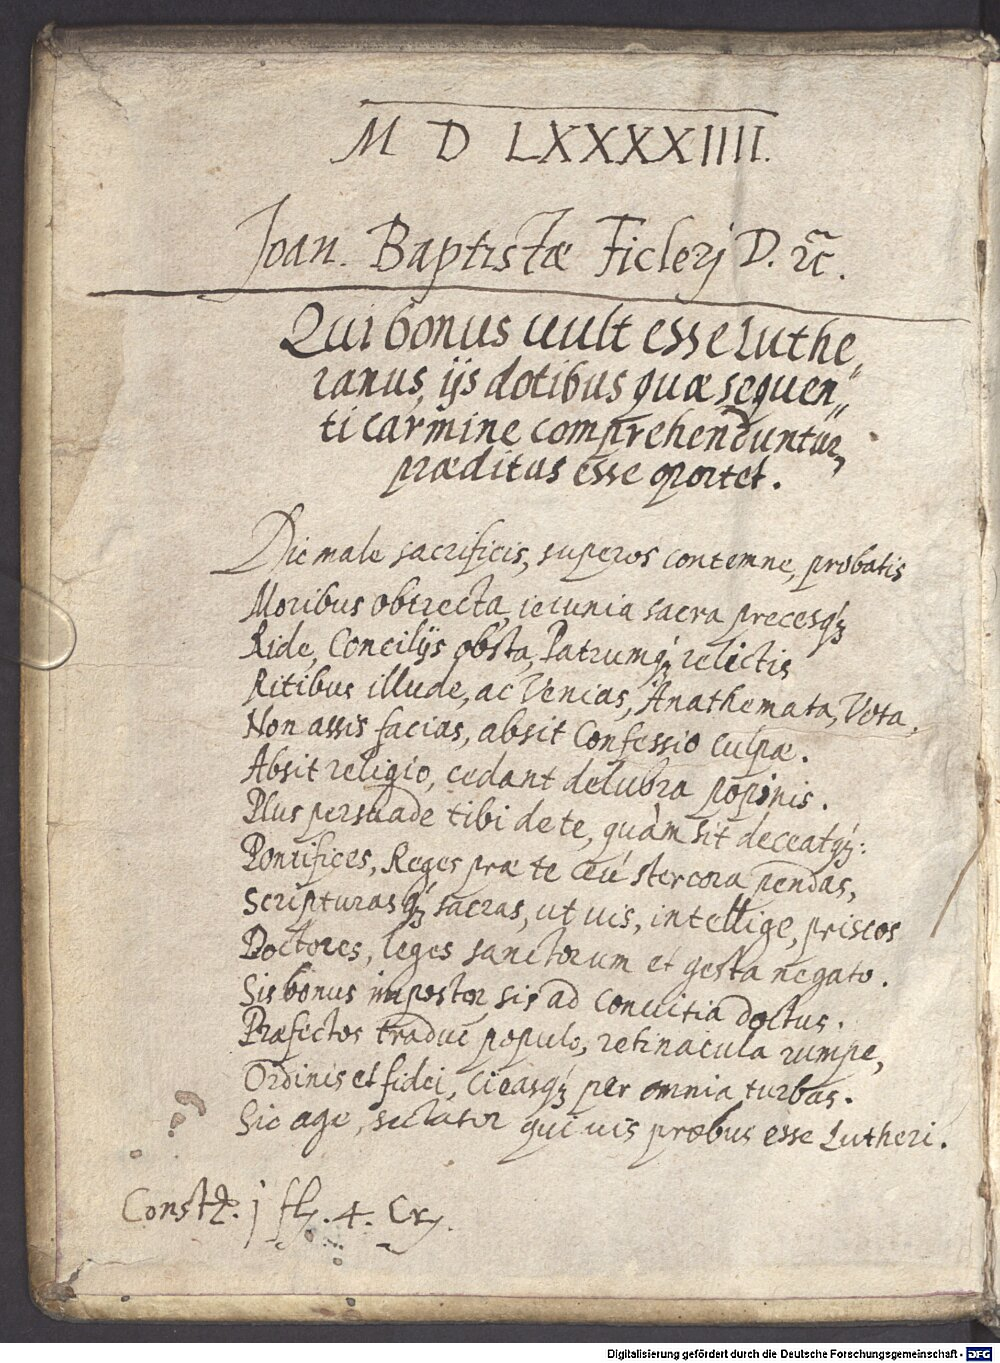 M D LXXXXIIII.
Joan. Baptistæ Ficlerj D. rc.
Qui bonus uult esse Luthe„
ranus, ijs dotibus quæ sequen„
ti carmine comprehenduntur,
præditus esse oportet.
Dic male sacrificis, superos contemne, probatis
Moribus obtrecta, ieiunia sacra precesqꝫ
Ride, Concilijs obsta, Patrumqꝫ relictis
Ritibus illude, ac Venias, Anathemata, Vota,
Non assis facias, absit Confessio culpæ.
Absit religio, cedant delubra popinis.
Plus persuade tibi de te, quàm sit deceatqꝫ:
Pontifices, Reges præ te ceu stercora pendas,
Scripturasqꝫ sacras, ut uis, intellige, priscos
Doctores, leges sanctorum et gesta negato.
Sis bonus impostor, sis ad conuitia doctus.
Præfectos traduc populo, retinacula rumpe,
Ordinis et fidei, Cieasqꝫ per omnia turbas.
Sic age, sectator qui uis probus esse Lutheri.
Constt. j fl. 4. Crz.
Digitalisierung gefördert durch die Deutsche Forschungsgemeinschaft - DFG